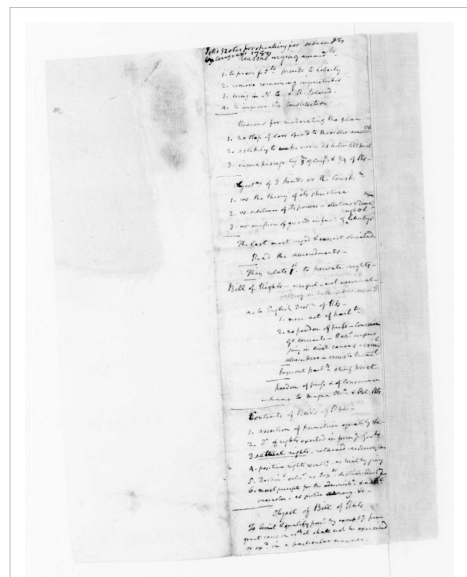 Notes for speaking for amendts
in Congress 1789
Reasons urging amendts
1. to prove fedts friends to liberty
2. remove remaining inquietudes
3. bring in N. C. R. Island.
4. to improve the Constitution
Reasons for moderating the plan
1. No stop of door opend to
2. as likely to make worse as better till
3. ensure passage by 2/3 of Congs & 3/4 of Sts
Objectns of 3 kinds vs the Constn
1. vs the theory of its structure
2. vs substance of its powers — elections &
3. vs omission of guards in favr of rights & liberty
The last most urged & easiest obviated
Read the amendments —
They relate 1st. to private rights —
Bill of Rights — useful — not essential —
as to English Decln of Rts —
1. mere act of parlt
2. no freedom of press — Conscience
Gl Warrants — Habs corpus
jury in Civil Causes — criml
attainders — arms to Protests
frequent parlts chief trust
freedom of press & of conscience
unknown to Magna Cha & Pet. Rts
Contents of Bill of Rhts.
1. assertion of primitive equality &c.
2. do. of rights exerted in formg of Govts
3. natural rights, retained
4. positive rights resultg. as trial by jury
5. Doctrinl artics vs Depts distinct
6. moral precepts for the administrn. &
character — as justice — economy — &c.
Object of Bill of Rhts
To limit & qualify powr. by exceptg from
grant cases in wch. it shall not be exercised
or exd. in a particular manner.